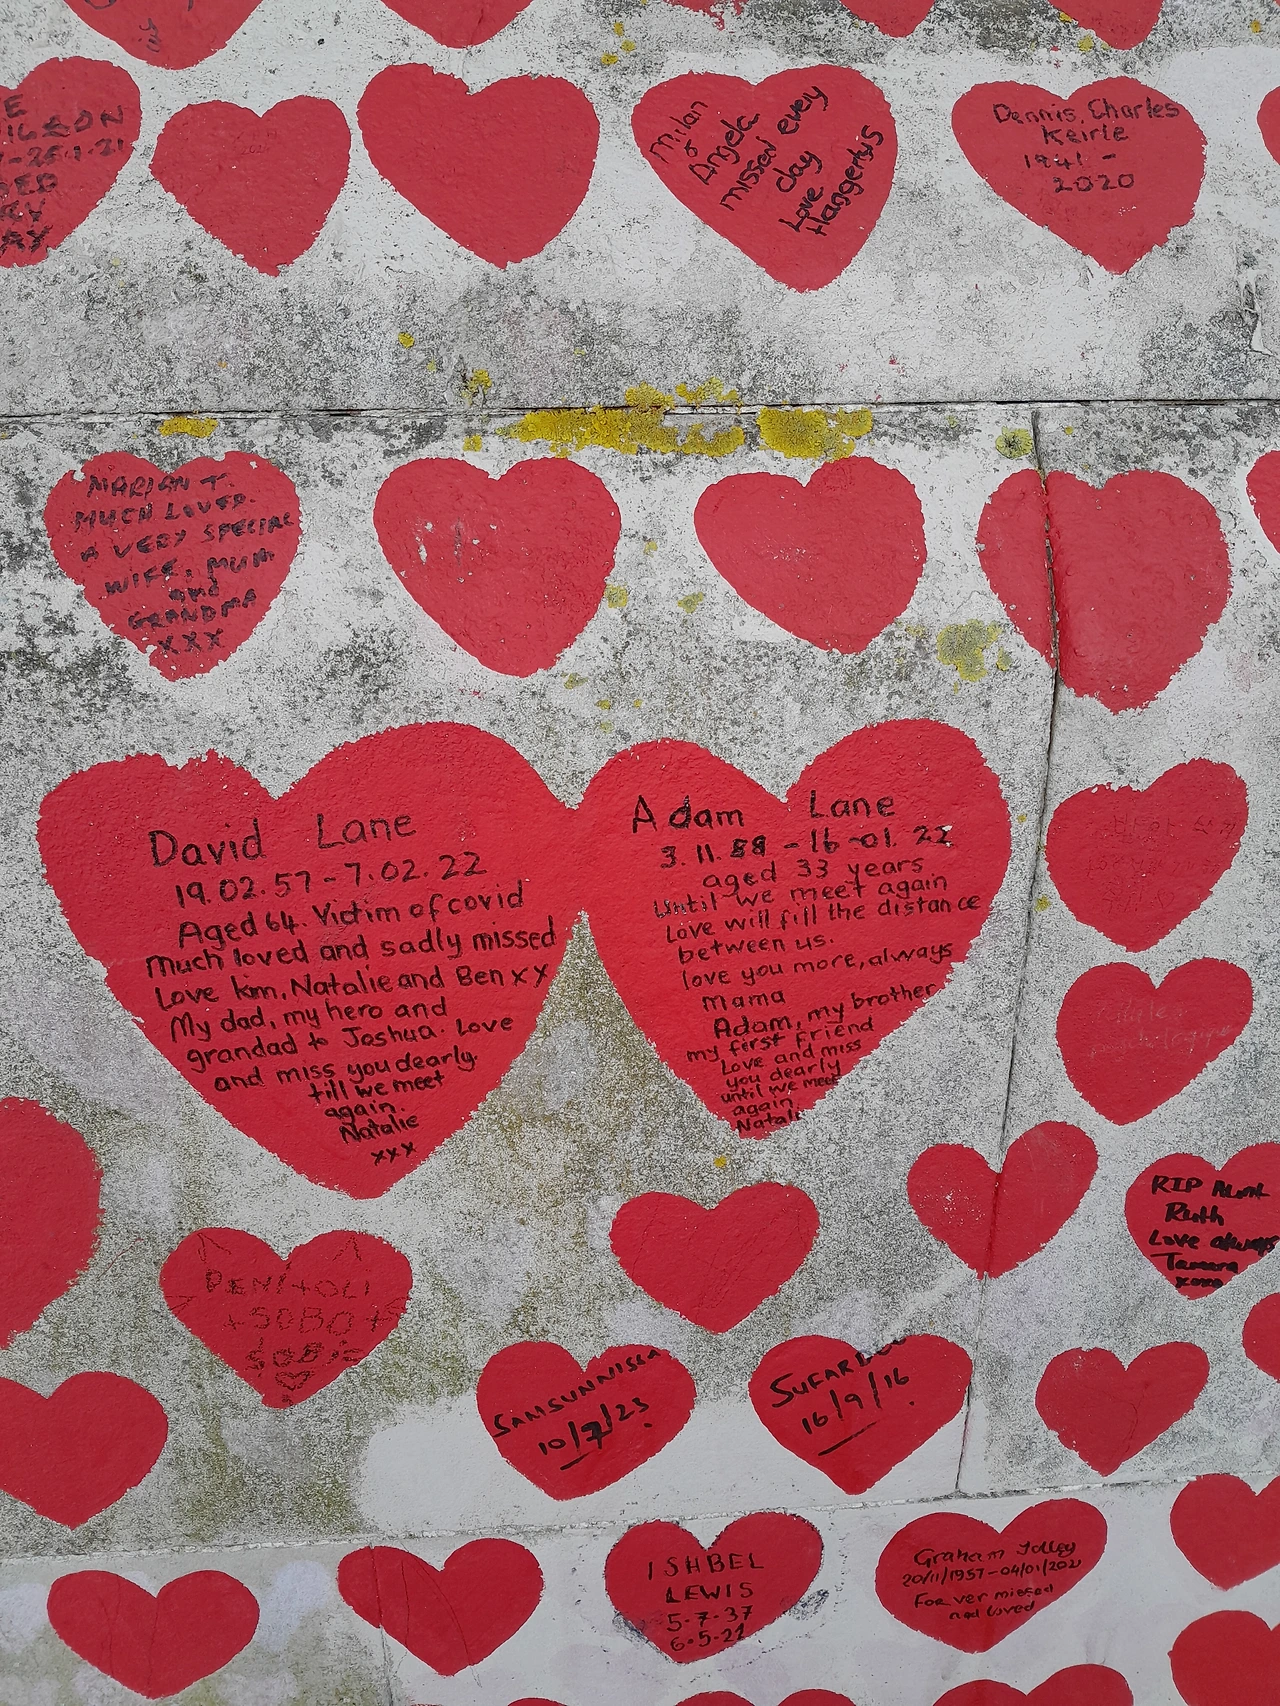 -25.1.21
Milan
&
Angela
missed every
day
Love
Haggertys
Dennis, Charles
Keirle
1941 -
2020
MARIAN T.
MUCH LOVED.
A VERY SPECIAL
WIFE, MUM
and
GRANDMA
XXX
David Lane
19.02.57 - 7.02.22
Aged 64. Victim of covid
Much loved and sadly missed
Love kim, Natalie and Ben xx
My dad, my hero and
grandad to Joshua. Love
and miss you dearly
till we meet
again.
Natalie
xxx
Adam Lane
3.11.88 - 16-01.22
aged 33 years
Until we meet again
Love will fill the distance
between us.
love you more, always
mama
Adam, my brother
my first friend
Love and miss
you dearly
until we meet
again.
Natali
RIP Aunt
Ruth
Love always
Tamara
xoxo
SAMSUNNISSA
10/7/23.
SUFAR
16/9/16.
ISHBEL
LEWIS
5.7.37
6.5.21
Graham Tolley
20/11/1957 - 04/01/202
For ver missed
nd loved